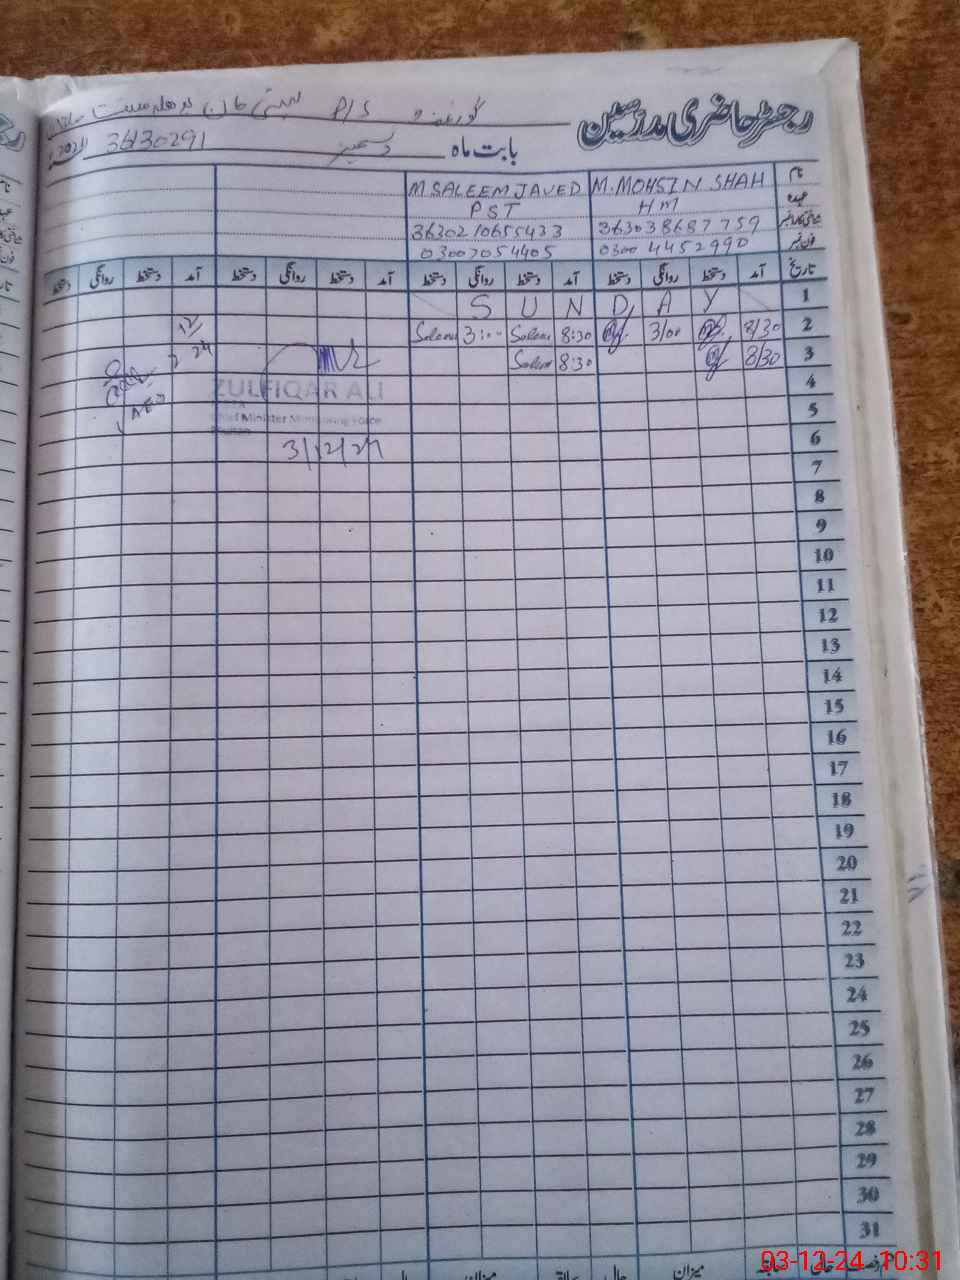 رجسٹر حاضری مدرسین گورنمنٹ P/S بستی خان
بابت ماہ دسمبر 36130291
نام M. MOHSIN SHAH M SALEEM JAVED
عہدہ HM PST
شناختی کارڈ نمبر 363038687759 3630210655433
فون نمبر 0300 4452990 03007054405
تاریخ آمد دستخط روانگی دستخط آمد دستخط روانگی دستخط آمد دستخط روانگی دستخط آمد دستخط روانگی دستخط
1 S U N D A Y
2 8/30 3/00 8:30 Saleem 3:00 Saleem
3 8/30 8:30 Saleem
4
5
6
7
8
9
10
11
12
13
14
15
16
17
18
19
20
21
22
23
24
25
26
27
28
29
30
31
ZULFIQAR ALI
Chief Minister Monitoring Force
3/12/24
AEO
میزان حال سابقہ میزان حال
03-12-24 10:31